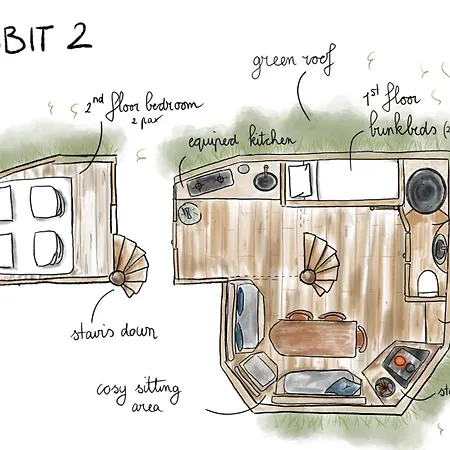 BBIT 2
green roof
2nd floor bedroom
2 pax
1st floor
bunkbeds (2
equiped kitchen
stairs down
cosy sitting
area